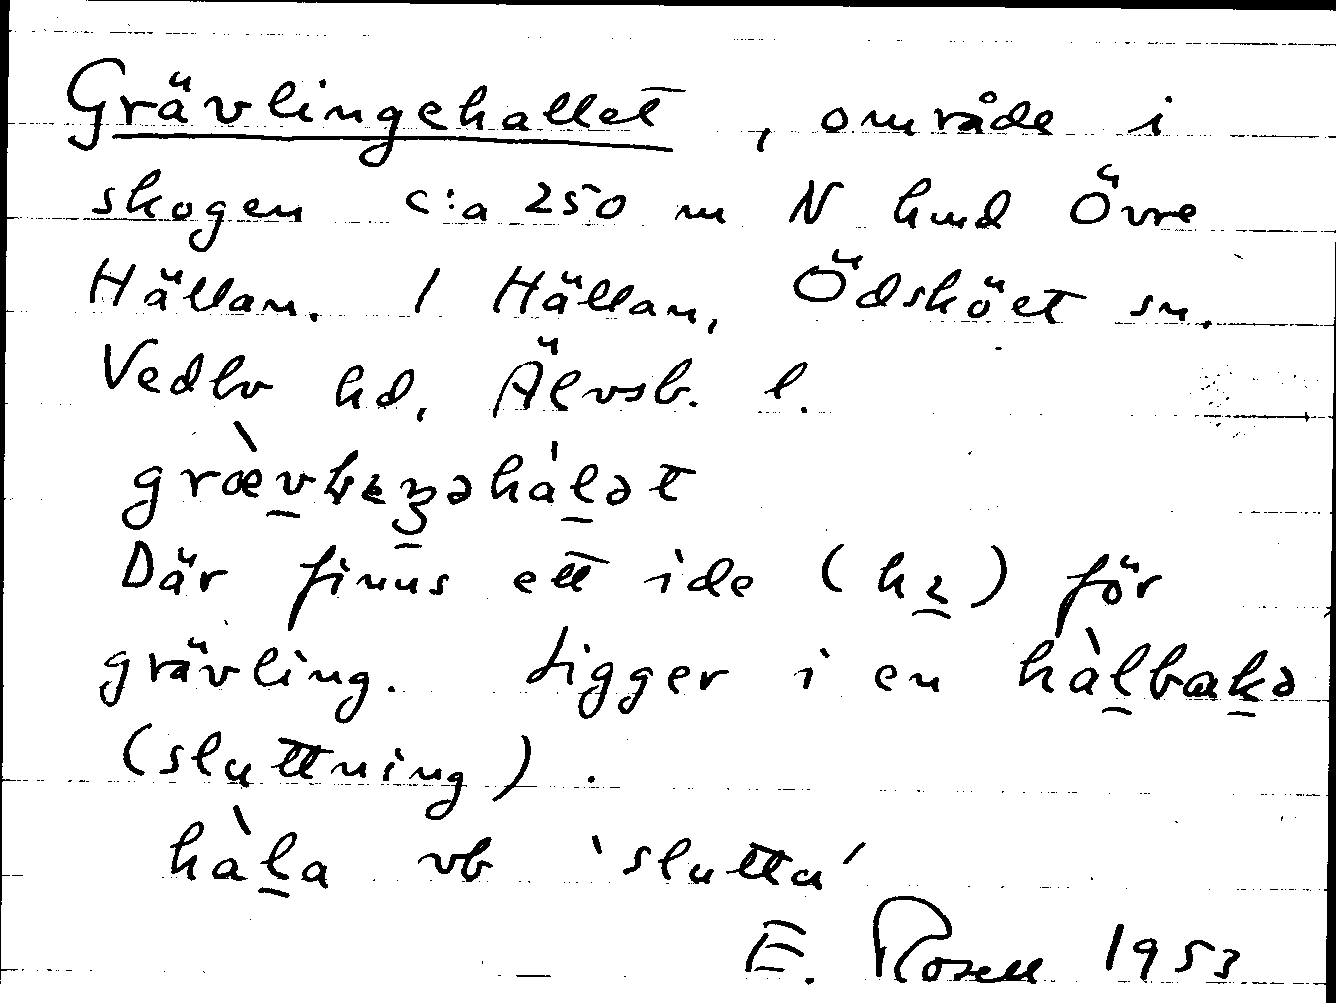 Grävlingehallet, område i
skogen c:a 250 m N hmd Övre
Hällan. / Hällan, Ödsköet sn.
Vedbo hd, Älvsb. l.
Där finns ett ide (hɩ) för
grävling. Ligger i en hàlbakə
(sluttning).
hàla vb 'slutta'
E. Rosell 1953